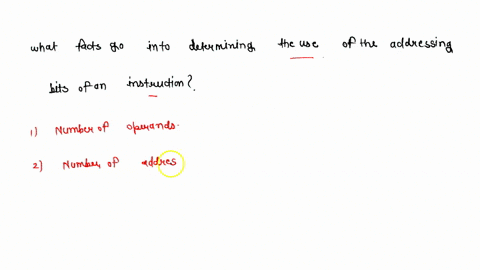 what facts go into determining the use of the addressing
bits of an instruction?
1) Number of operands.
2) Number of addres